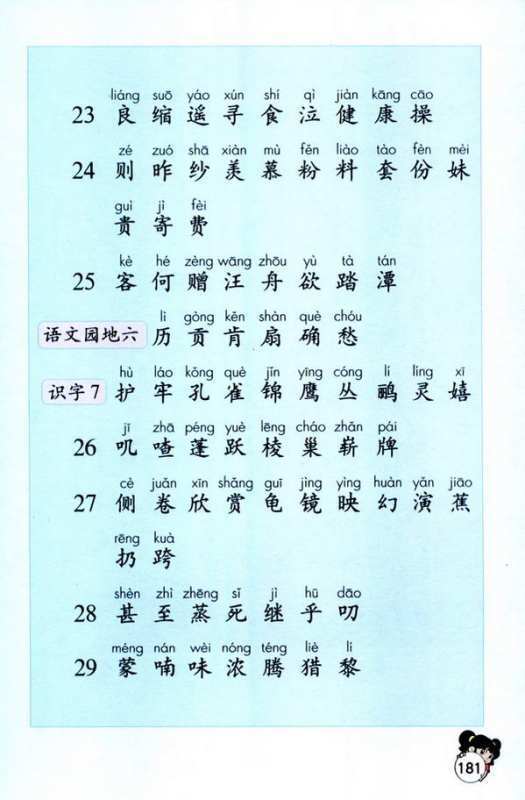 liáng suō yáo xún shí qì jiàn kāng cāo
23 良 缩 遥 寻 食 泣 健 康 操
zé zuó shā xiàn mù fěn liào tào fèn mèi
24 则 昨 纱 羡 慕 粉 料 套 份 妹
guì jì fèi
贵 寄 费
kè hé zèng wāng zhōu yù tà tán
25 客 何 赠 汪 舟 欲 踏 潭
lì gòng kěn shàn què chóu
语文园地六 历 贡 肯 扇 确 愁
hù láo kǒng què jǐn yīng cóng lí líng xī
识字7 护 牢 孔 雀 锦 鹰 丛 鹂 灵 嬉
jī zhā péng yuè léng cháo zhǎn pái
26 叽 喳 蓬 跃 棱 巢 崭 牌
cè juǎn xīn shǎng guī jìng yìng huàn yǎn jiāo
27 侧 卷 欣 赏 龟 镜 映 幻 演 蕉
rēng kuà
扔 跨
shèn zhì zhēng sǐ jì hū dāo
28 甚 至 蒸 死 继 乎 叨
méng nán wèi nóng téng liè lí
29 蒙 喃 味 浓 腾 猎 黎
181